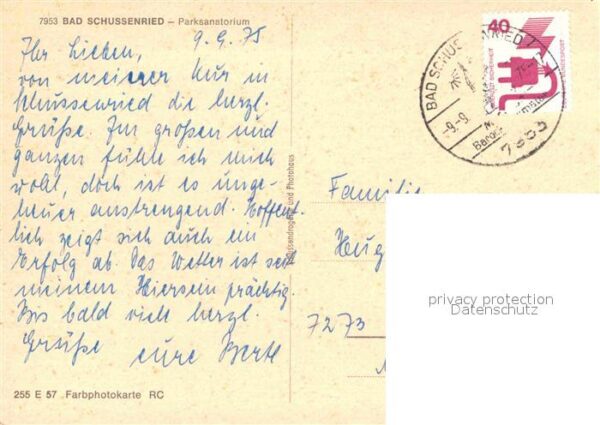 7953 BAD SCHUSSENRIED – Parksanatorium
9.9.75
Ihr Lieben,
von meiner Kur in
Schussenried die herzl.
Grüße. Im großen und
ganzen fühle ich mich
wohl, doch ist es unge-
heuer anstrengend. Hoffent-
lich zeigt sich auch ein
Erfolg ab. Das Wetter ist seit
meinem Hiersein prächtig.
Bis bald viele herzl.
Grüße eure Bertl
255 E 57 Farbphotokarte RC
40
BAD SCHUSSENRIED
-9.-9.
7953
Familie
Hug
7273
privacy protection
Datenschutz